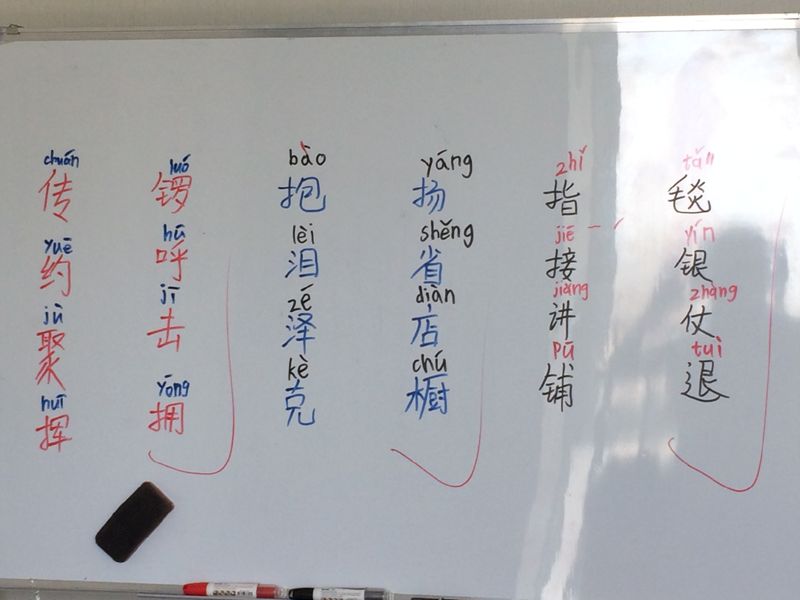 chuán
传
yuē
约
jù
聚
huī
挥
luó
锣
hū
呼
jī
击
yōng
拥
bào
抱
lèi
泪
zé
泽
kè
克
yáng
扬
shěng
省
diàn
店
chú
橱
zhǐ
指
jiē
接
jiǎng
讲
pū
铺
tǎn
毯
yín
银
zhàng
仗
tuì
退